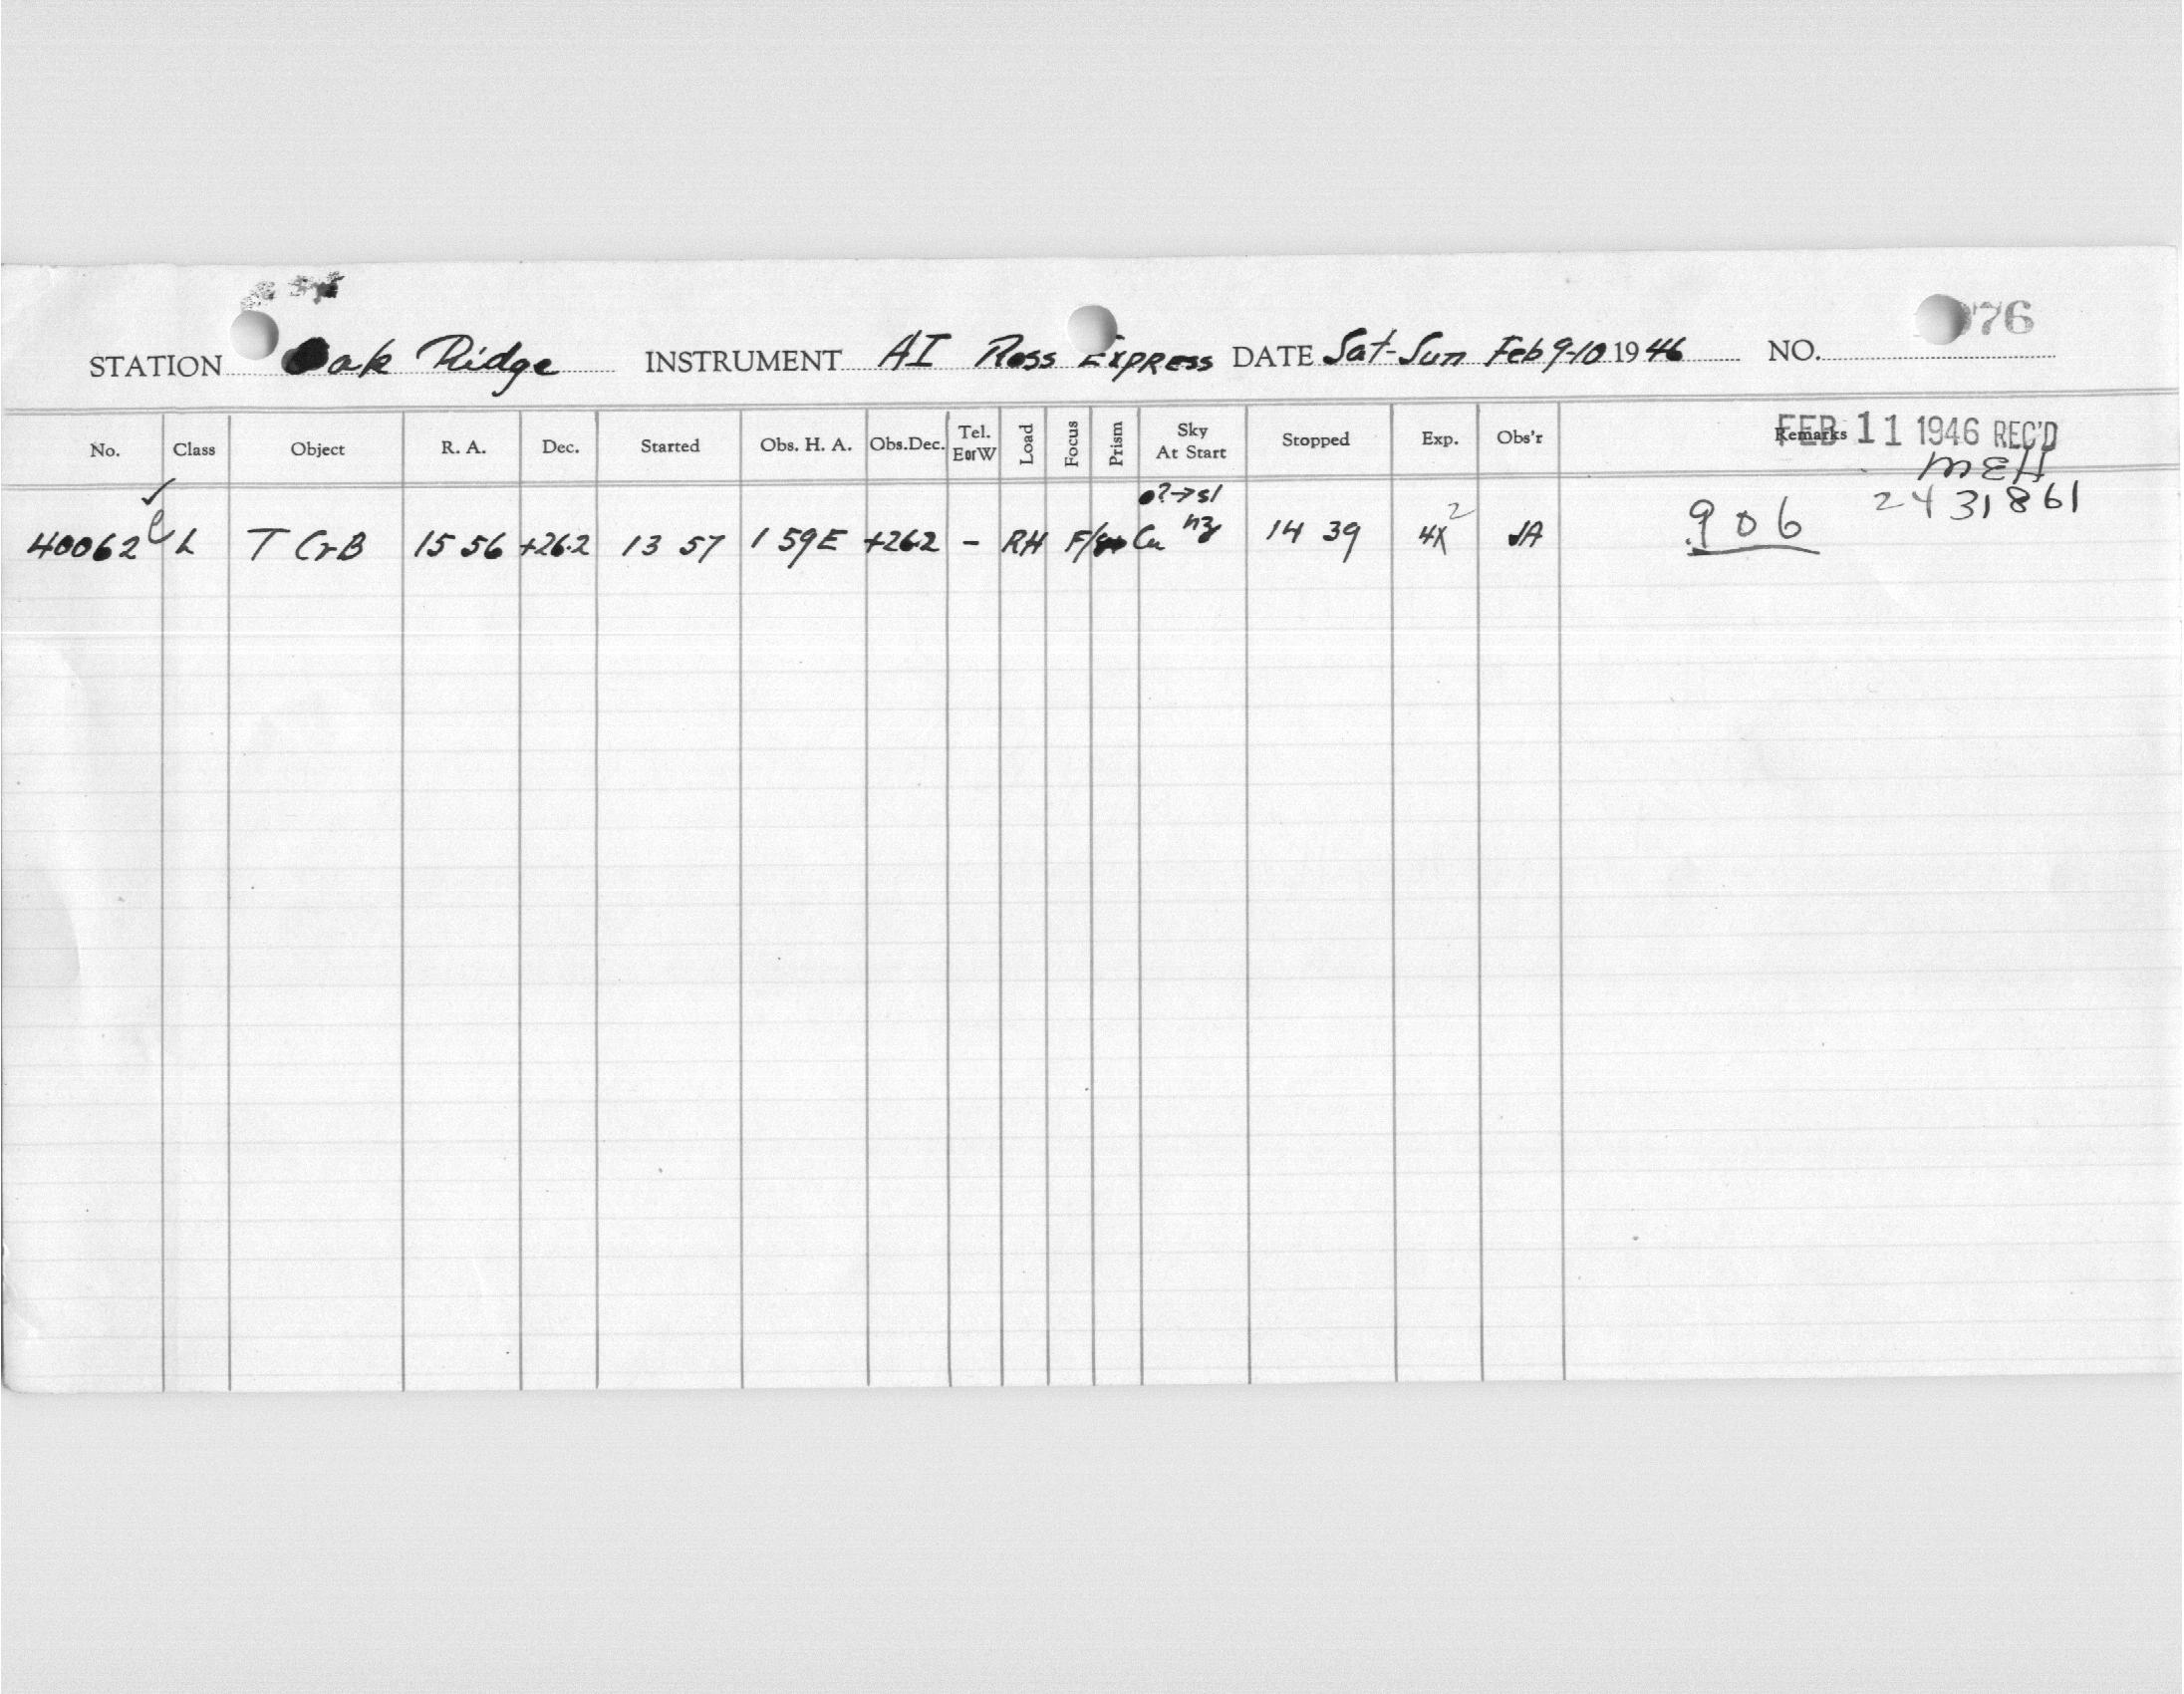 76
STATION Oak Ridge INSTRUMENT AI Ross Express DATE Sat-Sun Feb 9-10 1946 NO.
No. Class Object R. A. Dec. Started Obs. H. A. Obs.Dec. Tel. EorW Load Focus Prism Sky At Start Stopped Exp. Obs'r Remarks
FEB 11 1946 REC'D
MEH
2431861
o?→sl
40062 L T CrB 15 56 +26.2 13 57 1 59E +262 - RH Cu hzy 14 39 4X 2 JA .906